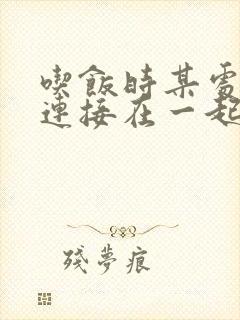 喫飯時某處
連接在一起
殘夢痕